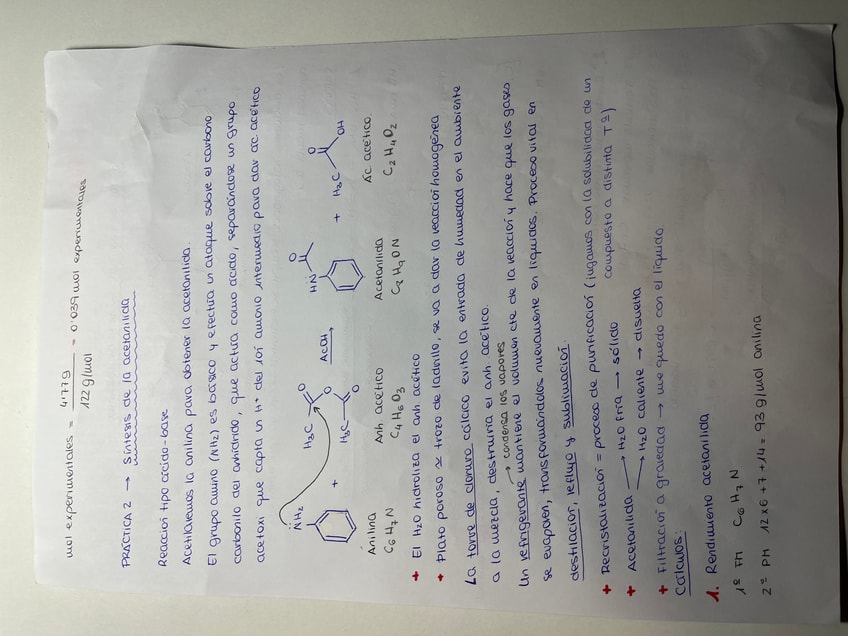 mol experimentales = 4'77 g / 122 g/mol = 0'039 mol experimentales
PRÁCTICA 2 → Síntesis de la acetanilida
Reacción tipo ácido-base
Acetilaremos la anilina para obtener la acetanilida.
El grupo amino (NH2) es básico y efectúa un ataque sobre el carbono
carbonilo del anhídrido, que actúa como ácido, separándose un grupo
acetoxi que capta un H+ del ión amonio intermedio para dar ác acético
NH2 + H3C O O H3C O AcOH → HN O + H3C O OH
Anilina Anh acético Acetanilida Ác acético
C6H7N C4H6O3 C8H9ON C2H4O2
+ El H2O hidroliza el anh acético
+ Plato poroso ≃ trozo de ladrillo, se va a dar la reacción homogénea
La torre de cloruro cálcico evita la entrada de humedad en el ambiente
a la mezcla, destruiría el anh acético.
→ condensa los vapores
Un refrigerante mantiene el volumen cte de la reacción y hace que los gases
se evaporen, transformándolos nuevamente en líquidos. Proceso vital en
destilación, reflujo y sublimación.
+ Recristalización = proceso de purificación (jugamos con la solubilidad de un
compuesto a distinta Tª)
+ Acetanilida → H2O fría → sólido
→ H2O caliente → disuelta
+ Filtración a gravedad → me quedo con el líquido.
Cálculos:
1. Rendimiento acetanilida
1º FM C6H7N
2º PM 12x6+7+14 = 93 g/mol anilina